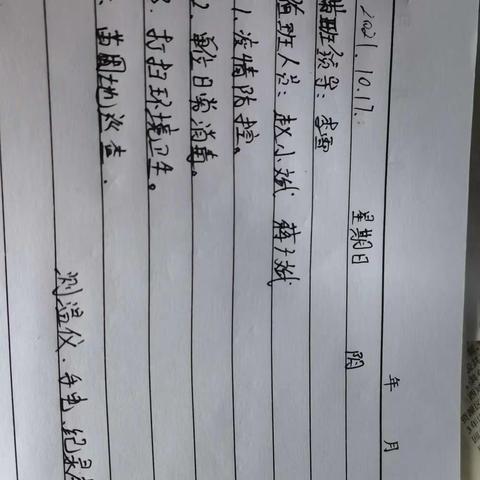 年 月
2021.10.17. 星期日 阴
带班领导: 李雪
值班人员: 赵小斌 薛大斌
1、疫情防控。
2、配合日常消毒。
3、打扫环境卫生。
、苗圃地巡查.
测温仪、手电、纪录